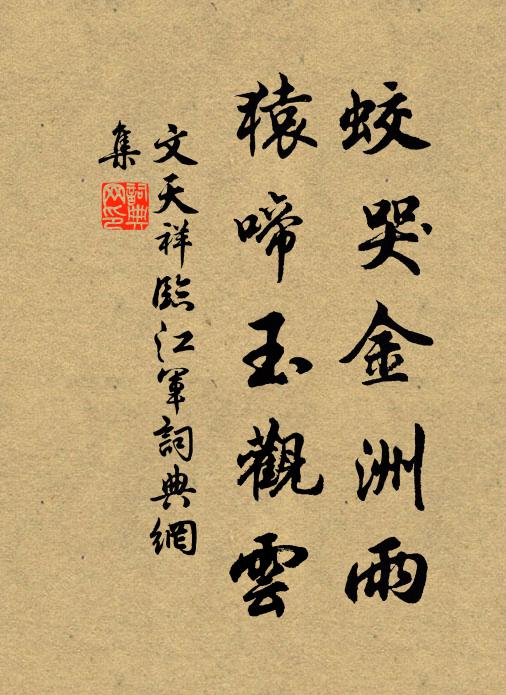 蛟哭金洲雨
猿啼玉觀雲
文天祥臨江軍詞典網
集
詞典網印